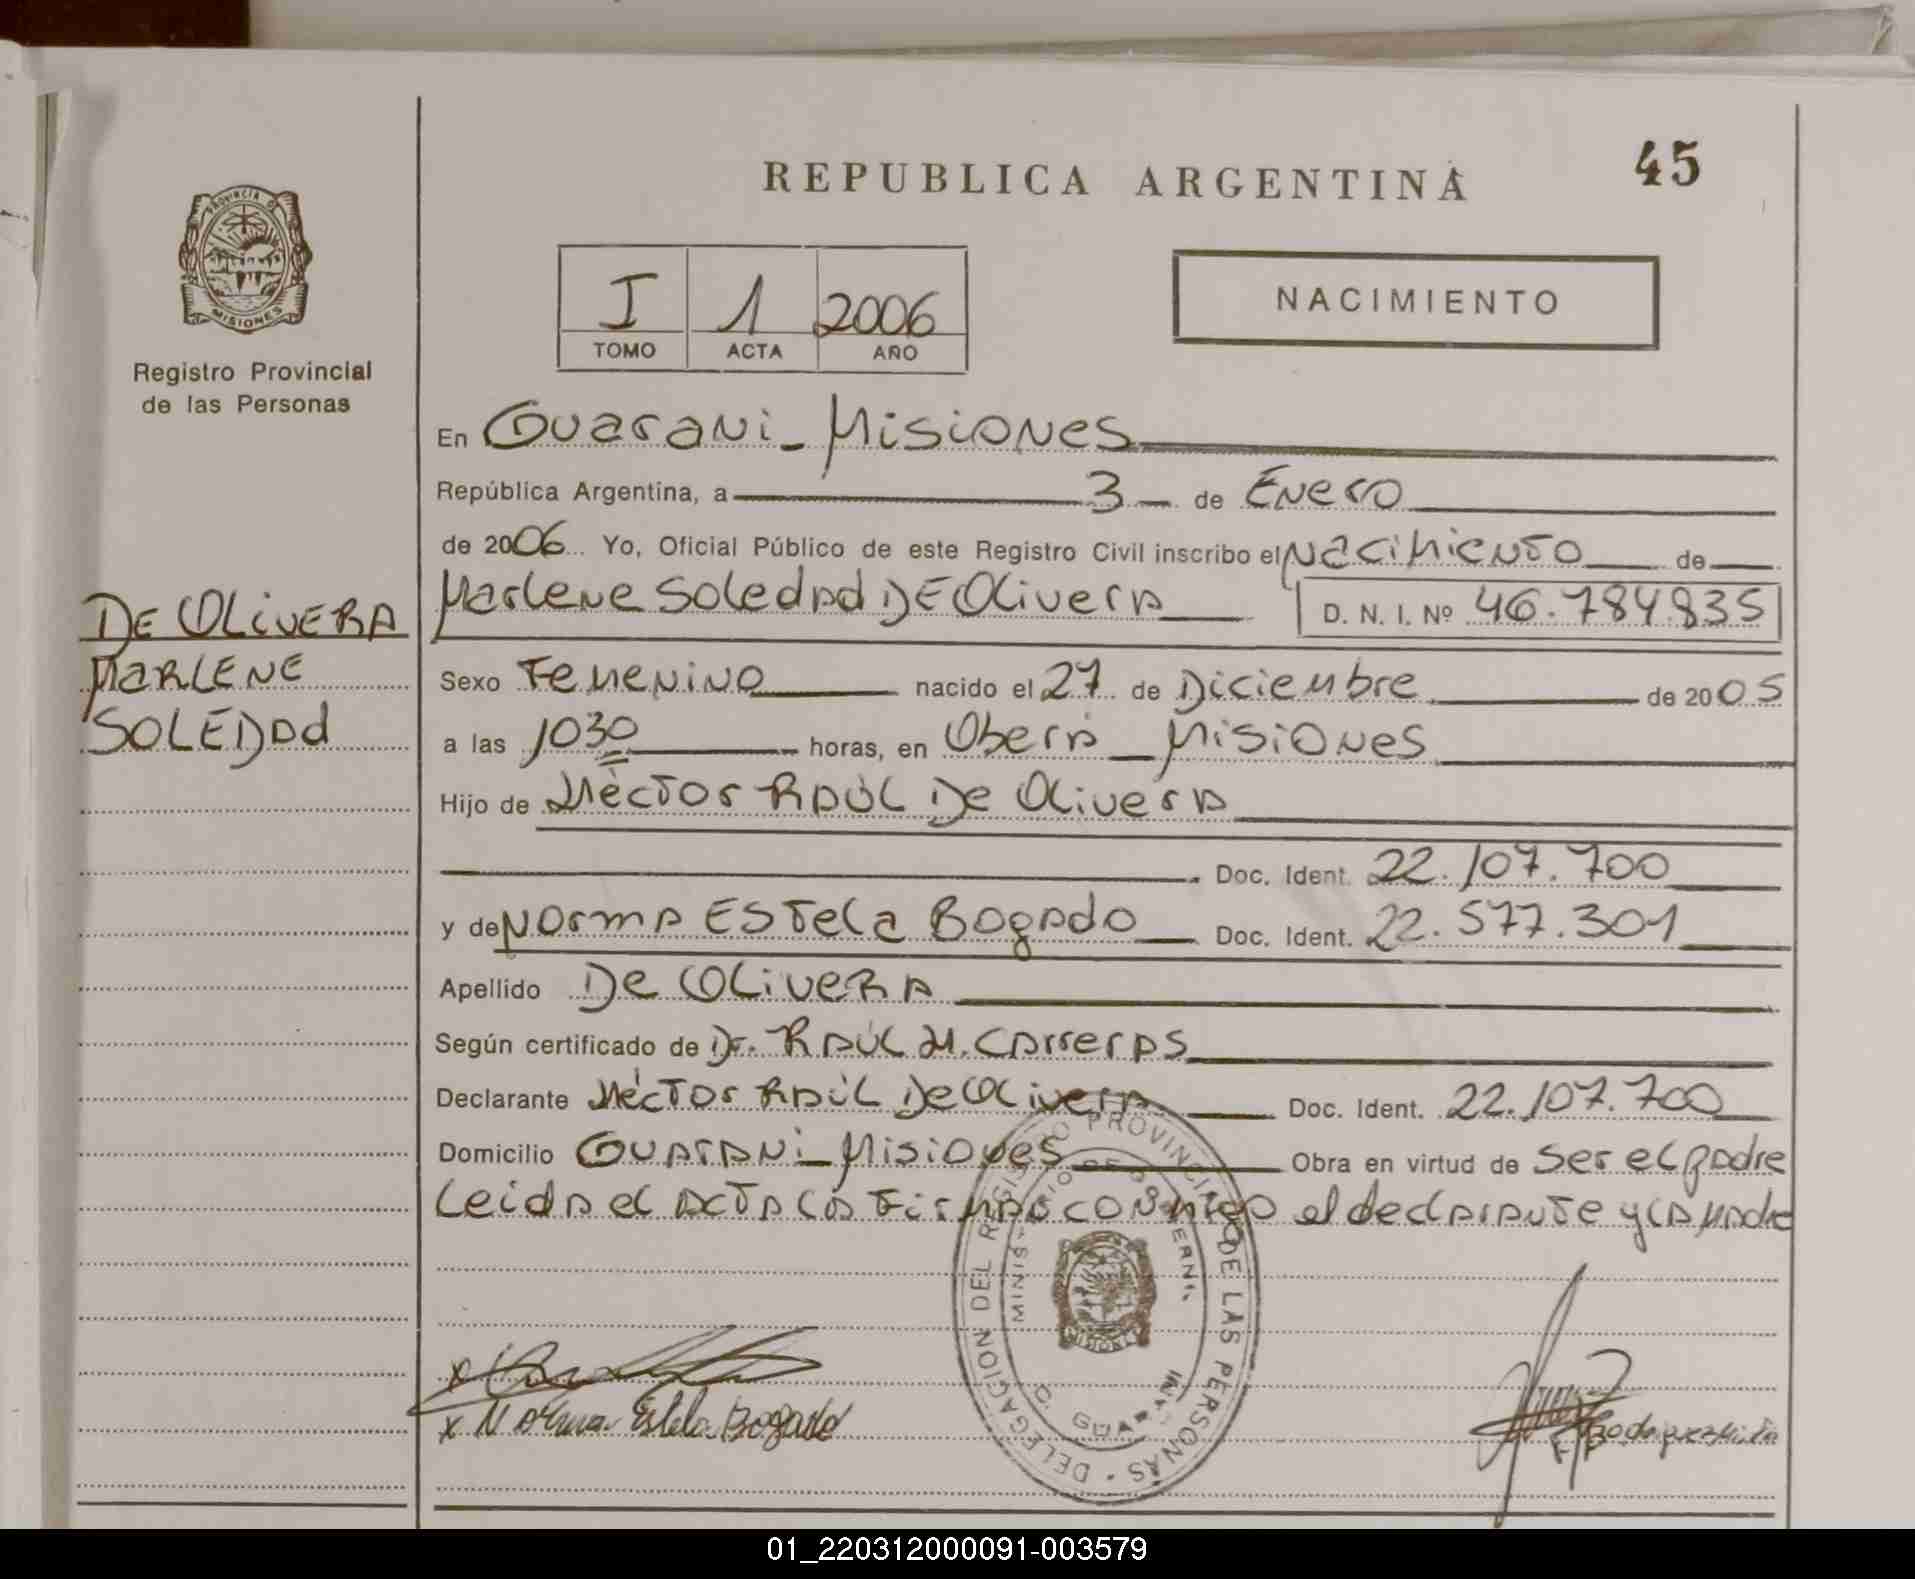 REPUBLICA ARGENTINA
45
PROVINCIA DE
MISIONES
Registro Provincial
de las Personas
I 1 2006
TOMO ACTA AÑO
NACIMIENTO
En Guarani - Misiones
República Argentina, a 3 de Enero
de 2006 Yo, Oficial Público de este Registro Civil inscribo el Nacimiento de
Marlene Soledad DE Olivera D. N. I. Nº 46.784.835
DE OLIVERA
MARLENE
SOLEDAD
Sexo Femenino nacido el 27 de Diciembre de 2005
a las 1030 horas, en Oberá - Misiones
Hijo de Héctor Raúl De Olivera
Doc. Ident. 22.107.700
y de Norma EStela Bogado Doc. Ident. 22.577.301
Apellido De OLiveRA
Según certificado de Dr. Raúl M. Carreras
Declarante Héctor Raúl De Olivera Doc. Ident. 22.107.700
Domicilio Guarani - Misiones Obra en virtud de Ser el padre
Leida el acta la firman conmigo el declarante y la Madre
DELEGACION DEL REGISTRO PROVINCIAL DE LAS PERSONAS
MINISTERIO DE GOBIERNO
GUARANI
MISIONES
x
x Norma Estela Bogado
01_220312000091-003579